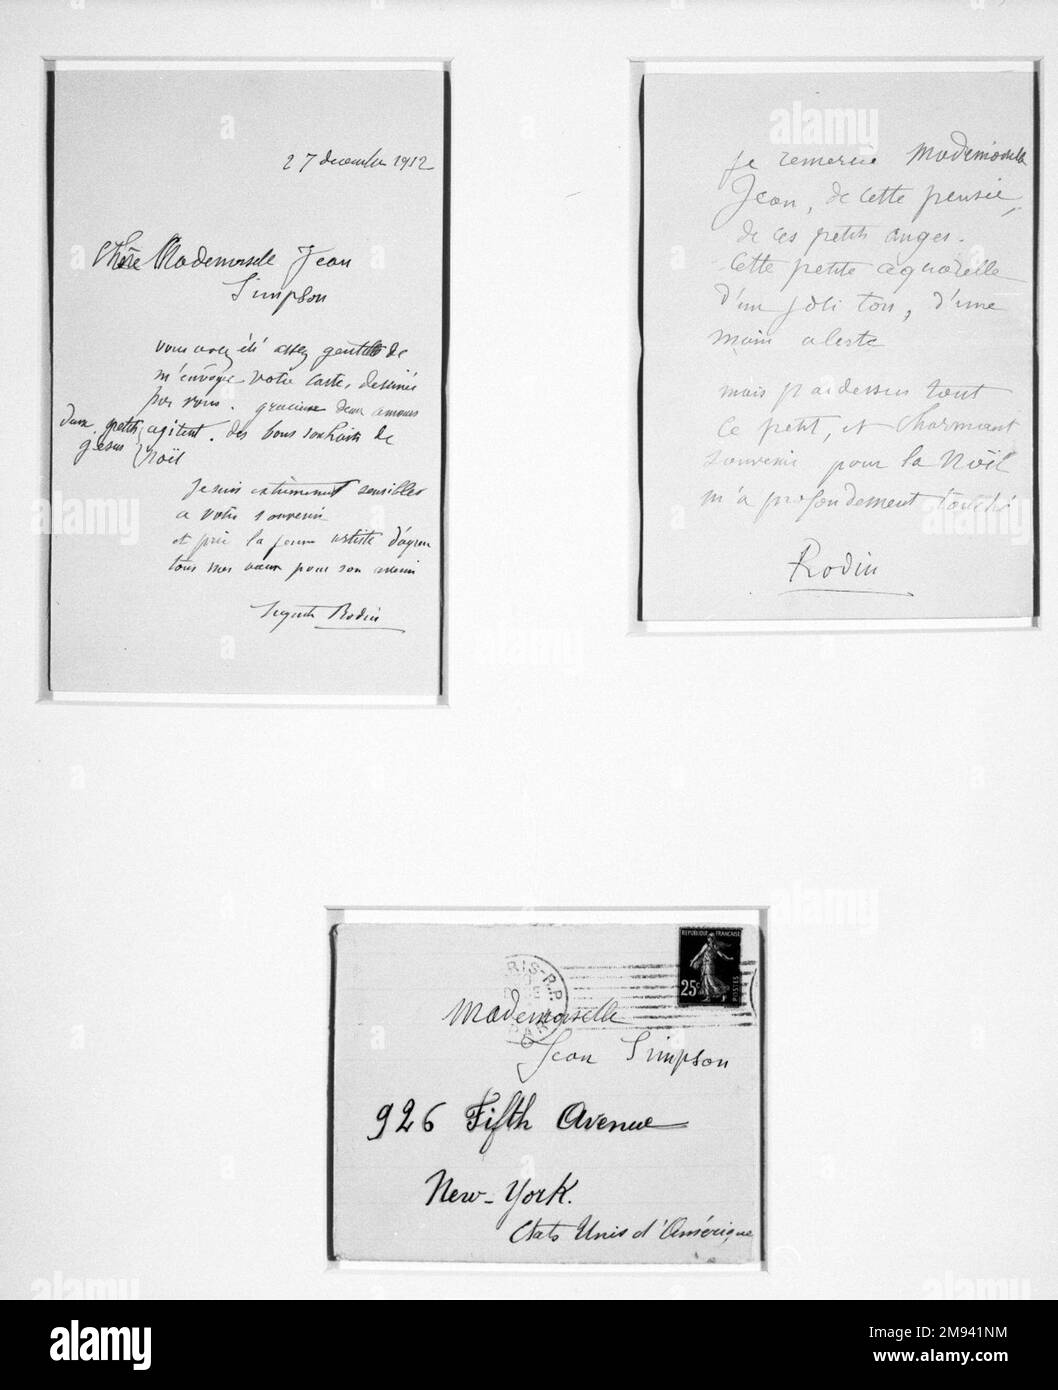 27 decembre 1912
Chère Mademoiselle Jean
Simpson
vous avez été assez gentille de
m'envoyer votre carte, dessinée
par vous. gracieuse deux amours
deux petits agitent des bons souhaits de
Jesus Noël
Je suis extrêmement sensible
a votre souvenir
et prie la jeune artiste d'agréer
tous mes vœux pour son avenir
Auguste Rodin
Je remercie Mademoiselle
Jean, de cette pensée,
de ces petits anges.
Cette petite aquarelle
d'un joli ton, d'une
main aleste
mais par dessus tout
ce petit, et charmant
souvenir pour la Noël
m'a profondement touché
Rodin
REPUBLIQUE FRANÇAISE
25c
POSTES
PARIS-R.P.
Mademoiselle
Jean Simpson
926 Fifth Avenue
New-York.
Etats Unis d'Amérique
alamy
Image ID: 2M941NM
www.alamy.com